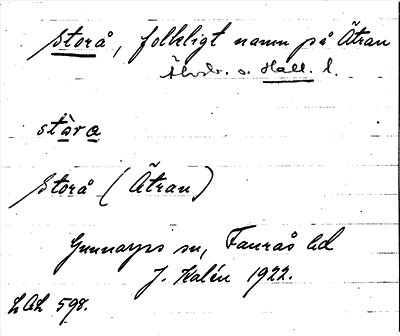 Storå, folkligt namn på Ätran
Älvsb. o. Hall. l.
stàra
Storå (Ätran)
Gunnarps sn, Faurås hd
J. Kalén 1922.
LAL 598.